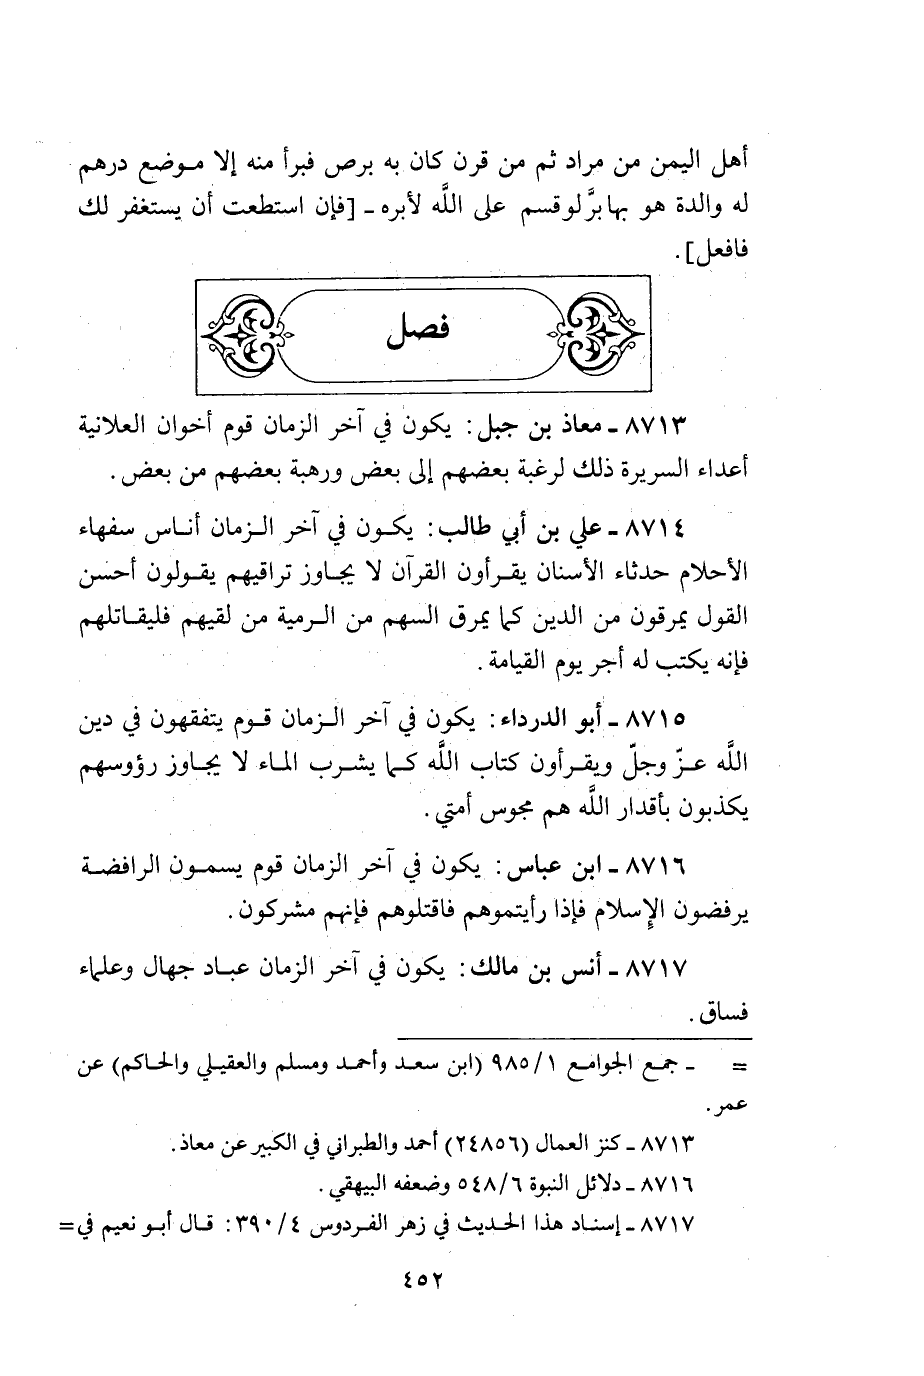 أهل اليمن من مراد ثم من قرن كان به برص فبرأ منه إلا موضع درهم
له والدة هو بها برٌّ لو قسم على اللَّه لأبره ـ [فإن استطعت أن يستغفر لك
فافعل].
فصل
٨٧١٣ ـ معاذ بن جبل: يكون في آخر الزمان قوم أخوان العلانية
أعداء السريرة ذلك لرغبة بعضهم إلى بعض ورهبة بعضهم من بعض.
٨٧١٤ ـ علي بن أبي طالب: يكون في آخر الزمان أناس سفهاء
الأحلام حدثاء الأسنان يقرأون القرآن لا يجاوز تراقيهم يقولون أحسن
القول يمرقون من الدين كما يمرق السهم من الرمية من لقيهم فليقاتلهم
فإنه يكتب له أجر يوم القيامة.
٨٧١٥ ـ أبو الدرداء: يكون في آخر الزمان قوم يتفقهون في دين
اللَّه عزّ وجلّ ويقرأون كتاب اللَّه كما يشرب الماء لا يجاوز رؤوسهم
يكذبون بأقدار اللَّه هم مجوس أمتي.
٨٧١٦ ـ ابن عباس: يكون في آخر الزمان قوم يسمون الرافضة
يرفضون الإسلام فإذا رأيتموهم فاقتلوهم فإنهم مشركون.
٨٧١٧ ـ أنس بن مالك: يكون في آخر الزمان عباد جهال وعلماء
فساق.
= ـ جمع الجوامع ٩٨٥/١ (ابن سعد وأحمد ومسلم والعقيلي والحاكم) عن
عمر.
٨٧١٣ ـ كنز العمال (٢٤٨٥٦) أحمد والطبراني في الكبير عن معاذ.
٨٧١٦ ـ دلائل النبوة ٥٤٨/٦ وضعفه البيهقي.
٨٧١٧ ـ إسناد هذا الحديث في زهر الفردوس ٣٩٠/٤: قال أبو نعيم في=
٤٥٢